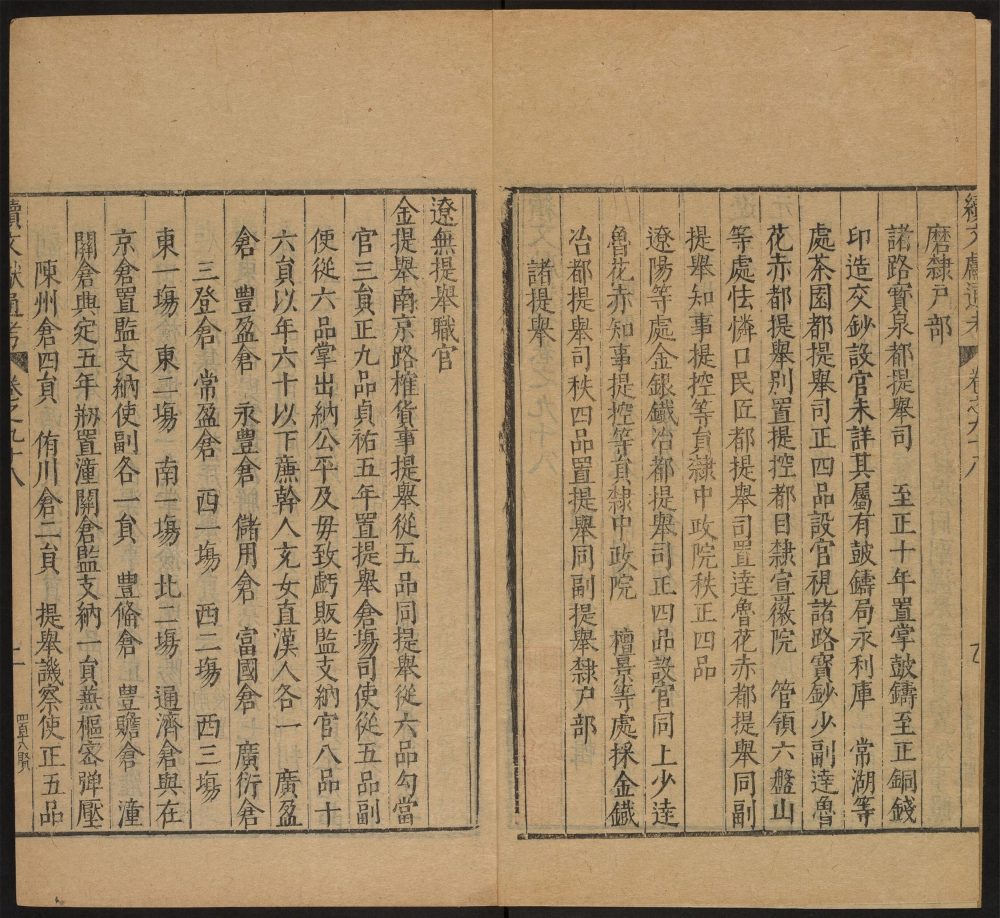 續文獻通考 卷之九十八
磨隸戸部
諸路寳泉都提舉司 至正十年置掌皷鑄至正銅錢
印造交鈔設官未詳其屬有皷鑄局永利庫 常湖等
處茶園都提舉司正四品設官視諸路寳鈔少副達魯
花赤都提舉别置提控都目隸宣徽院 管領六盤山
等處怯憐口民匠都提舉司置達魯花赤都提舉同副
提舉知事提控等員隸中政院秩正四品
遼陽等處金銀鐵冶都提舉司正四品設官同上少達
魯花赤知事提控等員隸中政院 檀景等處採金鐵
冶都提舉司秩四品置提舉同副提舉隸戸部
諸提舉
遼無提舉職官
金提舉南京路榷貨事提舉從五品同提舉從六品勾當
官三員正九品貞祐五年置提舉倉塲司使從五品副
使從六品掌出納公平及毋致虧販監支納官八品十
六員以年六十以下亷幹人充女直漢人各一 廣盈
倉 豊盈倉 永豊倉 儲用倉 富國倉 廣衍倉
三登倉 常盈倉 西一塲 西二塲 西三塲
東一塲 東二塲 南一塲 北二塲 通濟倉與在
京倉置監支納使副各一員 豊偹倉 豊贍倉 潼
關倉興定五年剏置潼關倉監支納一員兼樞宻弹壓
陳州倉四員 侑川倉二員 提舉譏察使正五品
續文獻通考 卷之九十八 二